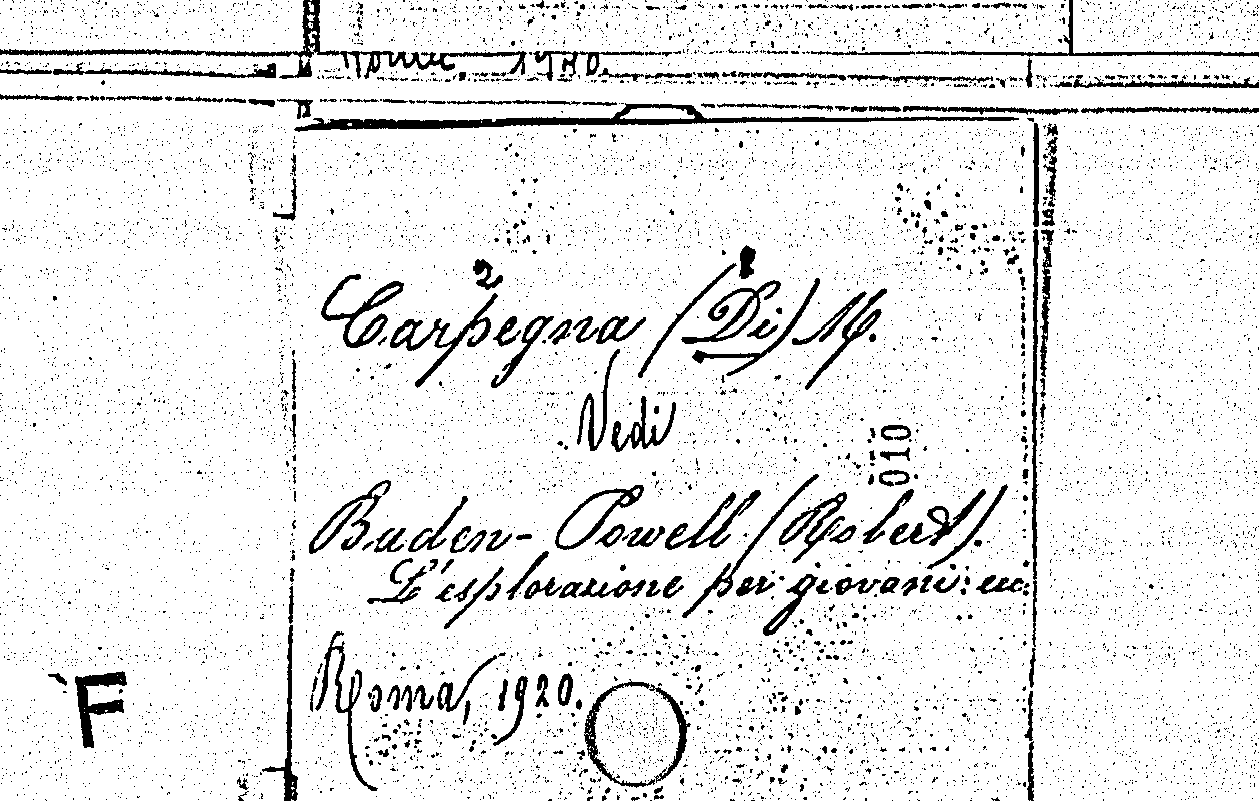 2
Carpegna (Di) M.
Vedi
010
Baden-Powell (Robert).
L'esplorazione per giovani: ecc.
Roma, 1920.
F